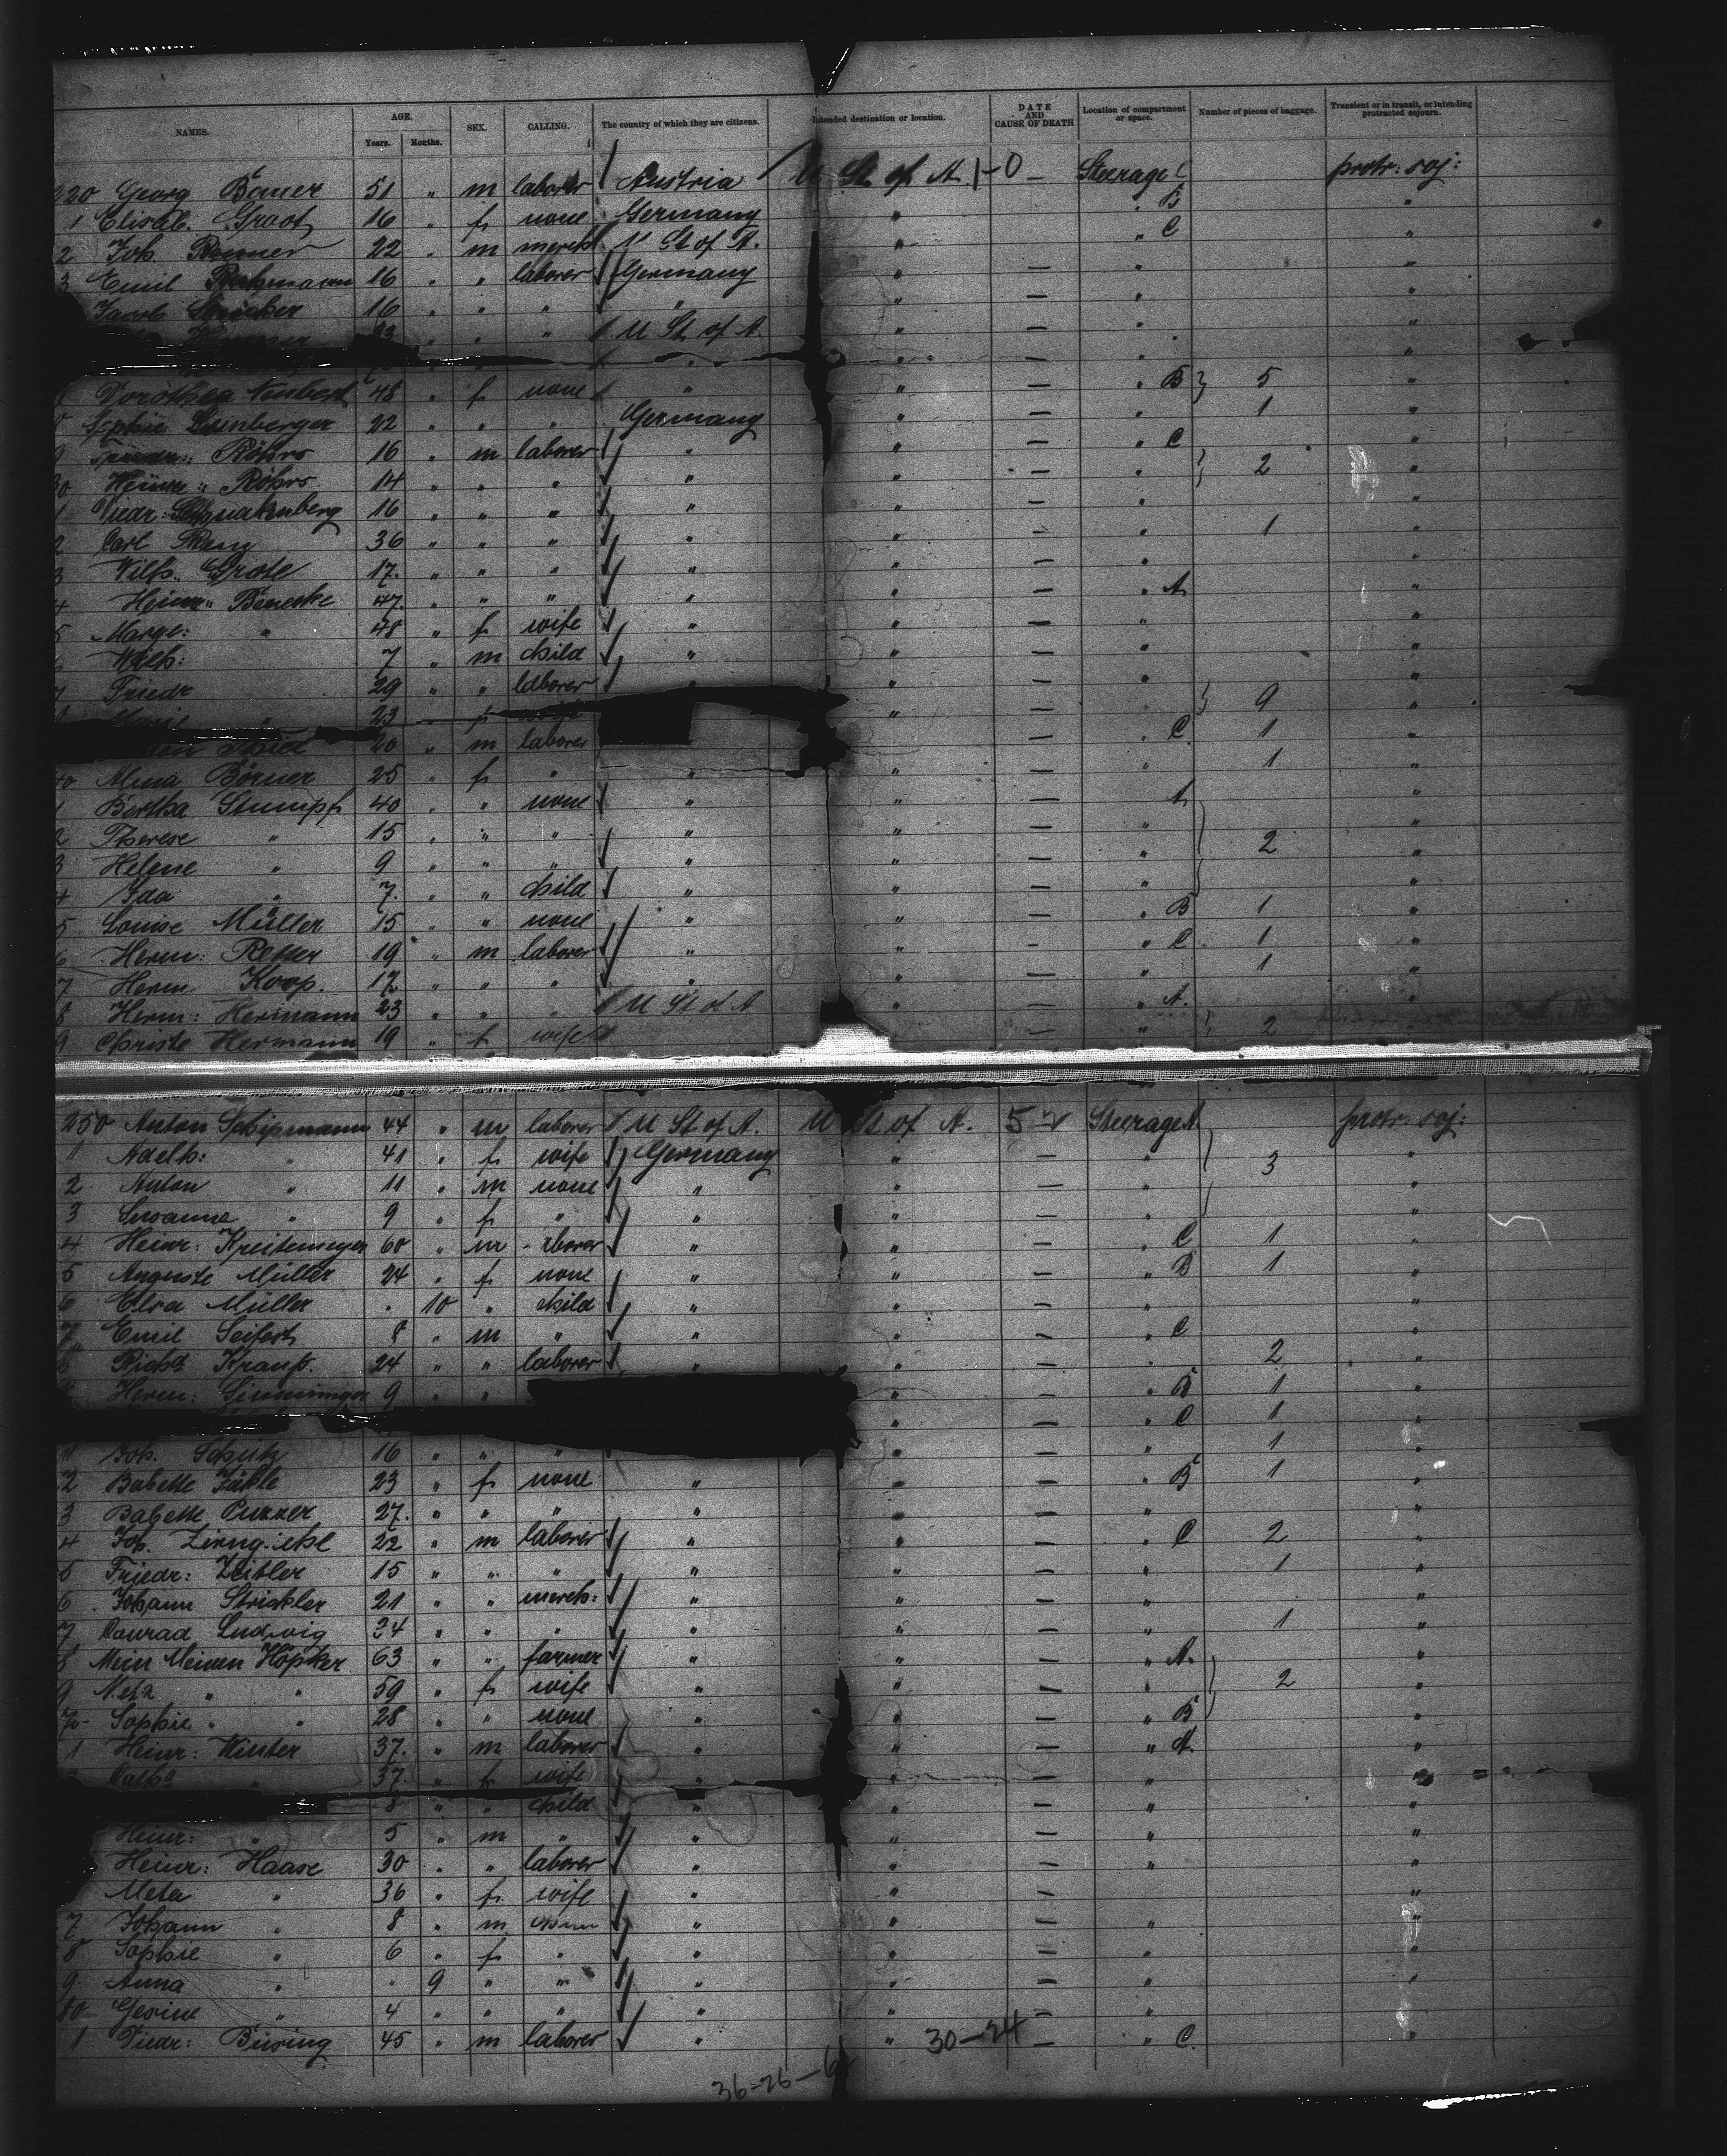 NAMES. AGE. Years. Months. SEX. CALLING. The country of which they are citizens. Intended destination or location. DATE AND CAUSE OF DEATH Location of compartment or space. Number of pieces of baggage. Transient or in transit, or intending protracted sojourn.
220 Georg Bauer 51 " m laborer Austria U St of A. 1-0 — Steerage C protr: soj:
1 Elisab. Groot 16 " f none Germany " " B "
2 Joh. 22 " m merch U St of A. " " C "
3 Emil 16 " " laborer Germany " — " "
Jacob Stricker 16 " " " " " — " "
23 " " " U St of A. " — " "
Dorothea Neubert 48 " f none " " — " B 5 "
8 Sophie 22 " " " Germany " — " 1 "
9 Friedr: Röhrs 16 " m laborer " " — " C "
30 Heinr: Röhrs 14 " " " " " — " 2 "
1 Diedr: 16 " " " " " — " "
2 Carl 36 " " " " " — " 1 "
3 Wilh. Grote 17. " " " " " — " "
4 Heinr: Beneske 47. " " " " " — " A "
5 Marge: " 48 " f wife " " — " "
6 Wilh: 7 " m child " " — " "
7 Friedr 29 " " laborer " " — " 9 "
23 " f wife " — " "
20 m laborer " — " C 1 "
40 Alma Börner 25 " f " " " — " 1 "
1 Bertha Stumpf 40 " " none " " — A "
2 Therese " 15 " " " " " — " 2 "
3 Helene " 9 " " " " " — " "
4 Ida " 7. " " child " " — " "
5 Louise Müller 15 " none " " — " B 1 "
6 Herm: 19 " m laborer " " — " C 1 "
7 Herm Koop. 17 " " " " " — " 1 "
8 Herm: Hermann 23 " " " U St of A " — " A. "
9 Christe Hermann 19 " f wife " — " 2
250 Anton Schipmann 44 " m laborer U St of A. U St of A. 5 Steerage A protr: soj:
1 Adelh: " 41 " f wife Germany " — " 3 "
2 Anton " 11 " m none " " — " "
3 Susanne " 9 " f " " " — " "
4 Heinr: Kreitemeyer 60 " m laborer " " — " C 1 "
5 Auguste Müller 24 " f none " " — " B 1 "
6 Elsa Müller " 10 " child " " — " "
7 Emil Seifert 8 " m " " " — " C "
8 Richd Krauss. 24 " " laborer " " — " 2 "
Herm: 9 " " " — " B 1 "
" — " C 1 "
1 Joh. Schutz 16 " " " " — " 1 "
2 Babette 23 " f none " " — " B 1 "
3 Babette 27. " " " " " — " "
4 Joh. Zirngiebl 22 " m laborer " " — " C 2 "
5 Friedr: Zeitler 15 " " " " " — " 1 "
6 Johann Strickler 21 " " merch: " " — " "
7 Conrad Ludwig 34 " " " " " — " 1 "
8 Mein Meinen Höpker 63 " " farmer " " — " A. "
9 Meta " " 59 " f wife " " — " 2 "
70 Sophie " " 28 " " none " " — " B "
1 Heinr: Winter 37. " m laborer " " — " A. "
" 37. " f wife " " — " "
8 " " child " " — " "
Heinr: " 5 " m " " " — " "
Heinr: Haase 30 " " laborer " " — " "
Meta " 36 " f wife " " — "
7 Johann " 8 " m " " — " "
8 Sophie " 6 " f " " " — "
9 Anna " " 9 " " " " — " "
80 Gesine " 4 " " " " " — " "
1 Diedr: Büsing 45 " m laborer " " 30-24 — " C. "
36-26-6